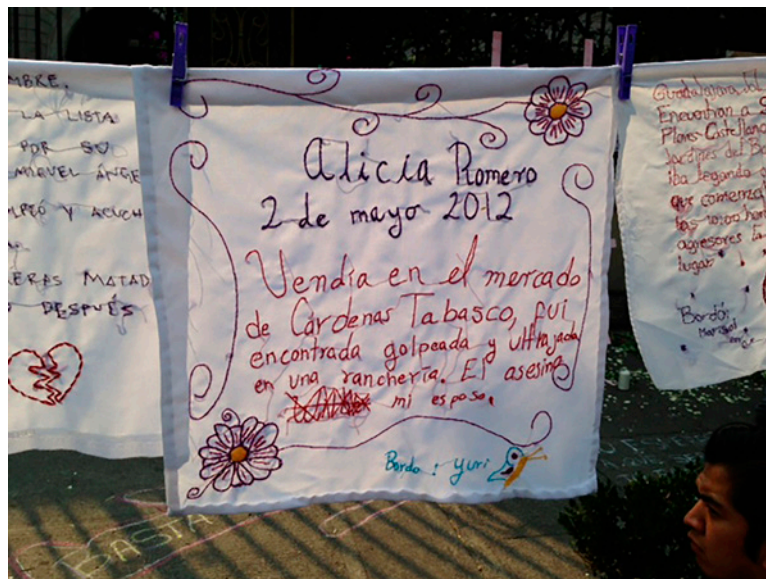 MBRE.
LA LISTA
POR SU
MIGUEL ÁNGE
LPEÓ Y ACUCH
ERAS MATAD
DESPUÉS
Alicia Romero
2 de mayo 2012
Vendia en el mercado
de Cárdenas Tabasco, fui
encontrada golpeada y ultrajada
en una ranchería. El asesino
mi esposo.
Bordo: Yuri
Guadalajara, Jal
Encuentran a S
Flores Castellano
Jardines del Bo
iba llegando
que comenza
las
agresores la
lugar.
Bordó:
Marisol
BASTA